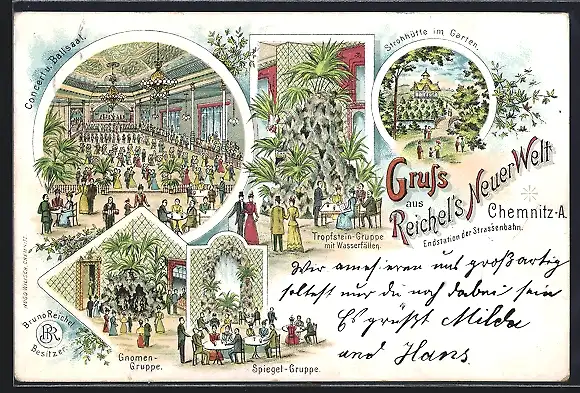 Concert u. Ballsaal.
Strohhütte im Garten.
Gruss
aus
Reichel's Neuer Welt
Chemnitz-A.
Endstation der Strassenbahn.
Tropfstein-Gruppe
mit Wasserfällen.
Wir amesieren uns großartig
solltest nur du noch dabei sein
Es grüßt Milda
und Hans
Bruno Reichel
BR
Besitzer.
Gnomen-
Gruppe.
Spiegel-Gruppe.